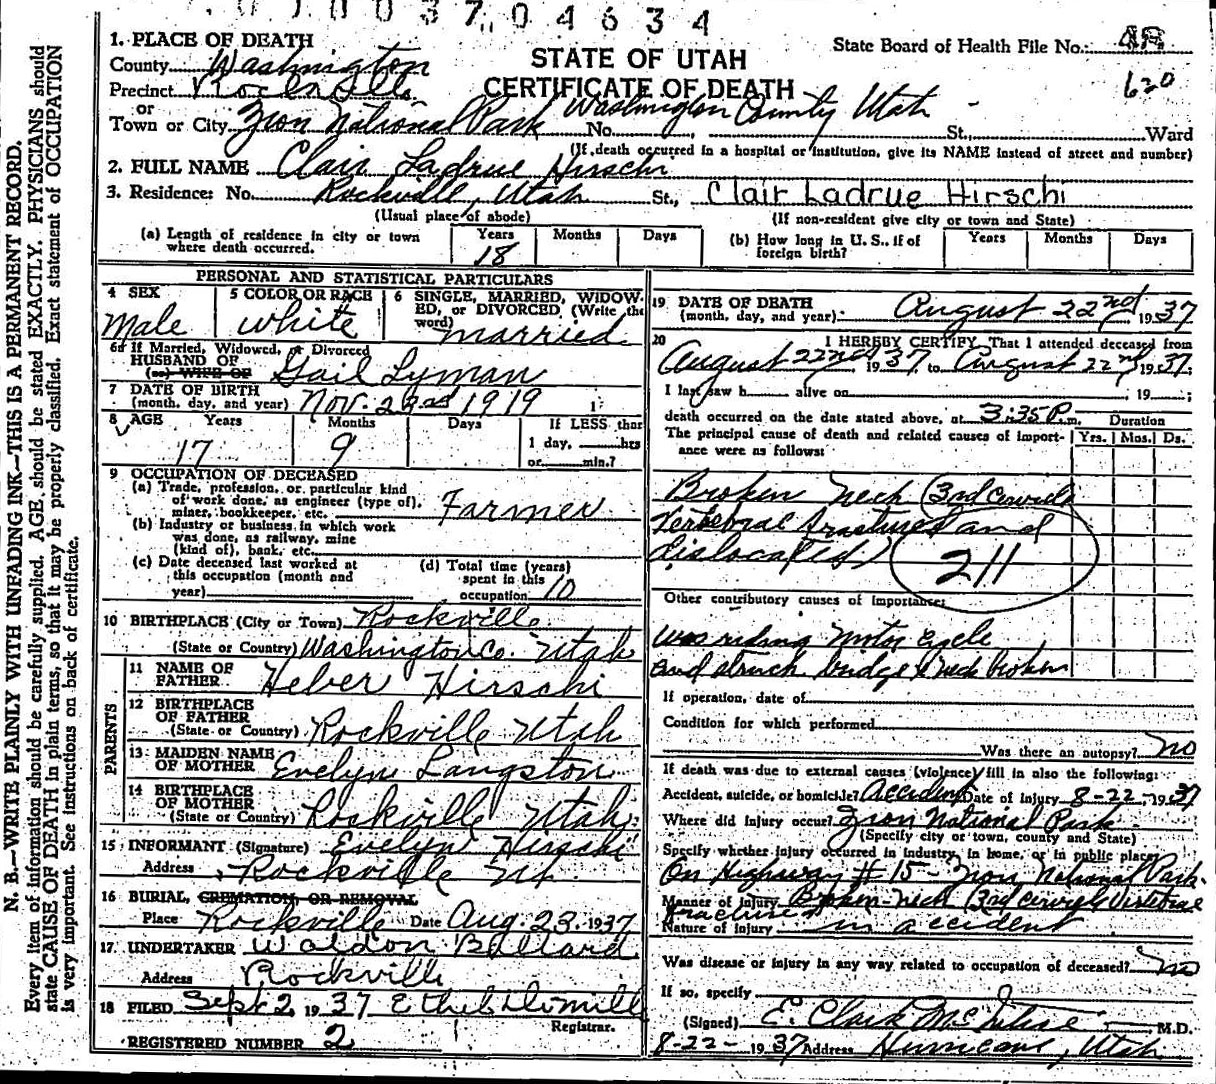 N. B.—WRITE PLAINLY WITH UNFADING INK—THIS IS A PERMANENT RECORD.
Every item of information should be carefully supplied. AGE should be stated EXACTLY. PHYSICIANS should
state CAUSE OF DEATH in plain terms, so that it may be properly classified. Exact statement of OCCUPATION
is very important. See instructions on back of certificate.
3704634
1. PLACE OF DEATH
County Washington
Precinct Rockville
or
Town or City Zion National Park Washington County Utah
No. St., Ward
STATE OF UTAH
CERTIFICATE OF DEATH
State Board of Health File No.
620
(If death occurred in a hospital or institution, give its NAME instead of street and number)
2. FULL NAME Clair Ladrue Hirschi
3. Residence: No. Rockville, Utah St., Clair Ladrue Hirschi
(Usual place of abode) (If non-resident give city or town and State)
(a) Length of residence in city or town where death occurred. Years 18 Months Days
(b) How long in U. S., if of foreign birth? Years Months Days
PERSONAL AND STATISTICAL PARTICULARS
4 SEX Male
5 COLOR OR RACE white
6 SINGLE, MARRIED, WIDOWED, or DIVORCED (Write the word) married
6a If Married, Widowed, or Divorced
HUSBAND OF
(or) WIFE OF Gail Lyman
7 DATE OF BIRTH
(month, day, and year) Nov. 23rd 1919
8 AGE Years 17 Months 9 Days If LESS than 1 day, hrs or min.?
9 OCCUPATION OF DECEASED
(a) Trade, profession, or particular kind of work done, as engineer (type of), miner, bookkeeper, etc. Farmer
(b) Industry or business in which work was done, as railway, mine (kind of), bank, etc.
(c) Date deceased last worked at this occupation (month and year)
(d) Total time (years) spent in this occupation 10
10 BIRTHPLACE (City or Town) Rockville
(State or Country) Washington Co. Utah
PARENTS
11 NAME OF FATHER Heber Hirschi
12 BIRTHPLACE OF FATHER
(State or Country) Rockville Utah
13 MAIDEN NAME OF MOTHER Evelyn Langston
14 BIRTHPLACE OF MOTHER
(State or Country) Rockville Utah
15 INFORMANT (Signature) Evelyn Hirschi
Address Rockville Ut.
16 BURIAL, CREMATION, OR REMOVAL
Place Rockville Date Aug 23, 1937
17. UNDERTAKER Waldon Ballard
Address Rockville
18 FILED Sept 2, 1937 Ethel Demill
Registrar.
REGISTERED NUMBER 2
19 DATE OF DEATH
(month, day, and year) August 22nd, 1937
20 I HEREBY CERTIFY, That I attended deceased from
August 22nd 1937 to August 22nd 1937;
I last saw h alive on , 19 ;
death occurred on the date stated above, at 3:35 P.m.
Duration
The principal cause of death and related causes of importance were as follows: Yrs. Mos. Ds.
Broken neck (3rd cervicle
vertebral fractured and
dislocated)
211
Other contributory causes of importance:
was riding motor cycle
and struck bridge & neck broken
If operation, date of
Condition for which performed
Was there an autopsy? no
If death was due to external causes (violence) fill in also the following:
Accident, suicide, or homicide? Accident Date of injury 8-22-, 1937
Where did injury occur? Zion National Park
(Specify city or town, county and State)
Specify whether injury occurred in industry, in home, or in public place
On Highway # 15 - Zion National Park.
Manner of injury Broken neck (3rd cervicle vertebral
fractured
Nature of injury in accident
Was disease or injury in any way related to occupation of deceased? no
If so, specify
(Signed) E. Clark McIntire M.D.
8-22- 1937 Address Hurricane, Utah